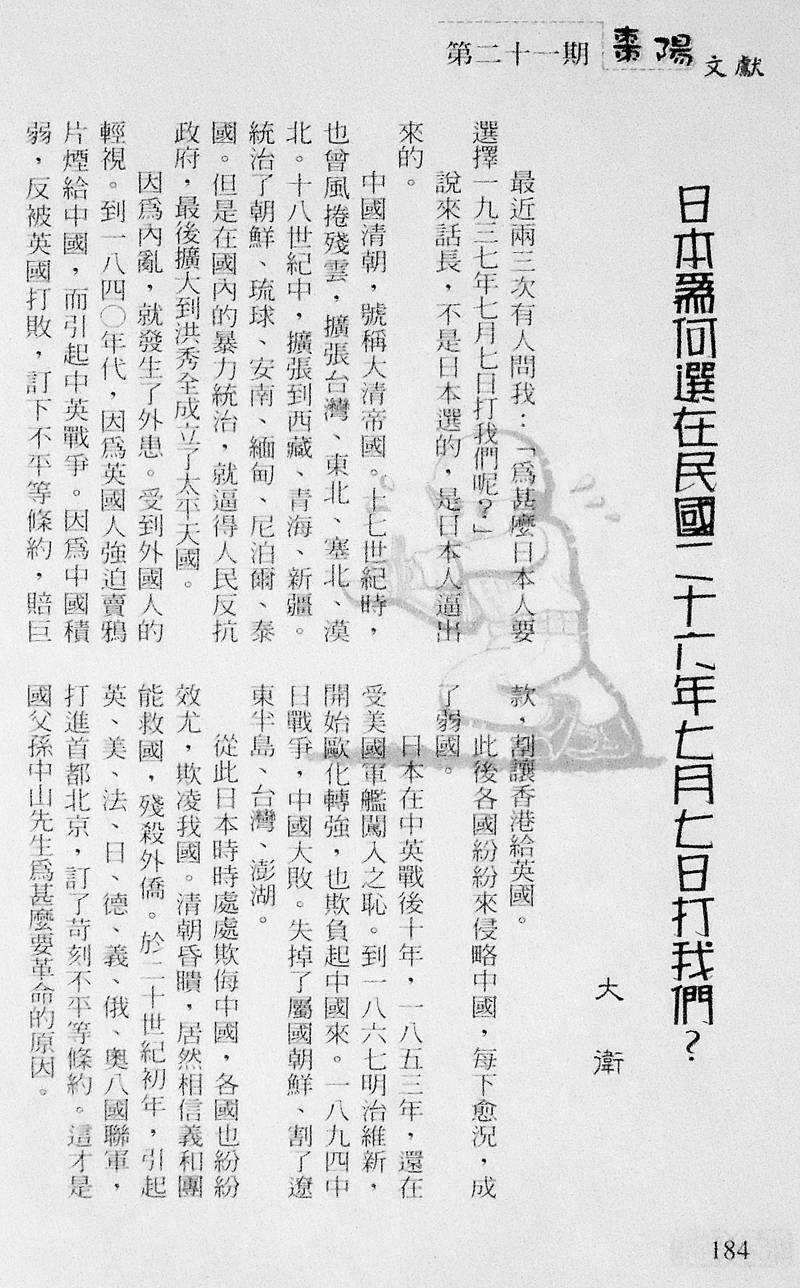 第二十一期
棗陽
文獻
日本為何選在民國二十六年七月七日打我們？
大衛
最近兩三次有人問我：「為甚麼日本人要
選擇一九三七年七月七日打我們呢？」
說來話長，不是日本選的，是日本人逼出
來的。
中國清朝，號稱大清帝國。十七世紀時，
也曾風捲殘雲，擴張台灣、東北、塞北、漠
北。十八世紀中，擴張到西藏、青海、新疆。
統治了朝鮮、琉球、安南、緬甸、尼泊爾、泰
國。但是在國內的暴力統治，就逼得人民反抗
政府，最後擴大到洪秀全成立了太平天國。
因為內亂，就發生了外患。受到外國人的
輕視。到一八四○年代，因為英國人強迫賣鴉
片煙給中國，而引起中英戰爭。因為中國積
弱，反被英國打敗，訂下不平等條約，賠巨
款，割讓香港給英國。
此後各國紛紛來侵略中國，每下愈況，成
了弱國。
日本在中英戰後十年，一八五三年，還在
受美國軍艦闖入之恥。到一八六七明治維新，
開始歐化轉強，也欺負起中國來。一八九四中
日戰爭，中國大敗。失掉了屬國朝鮮、割了遼
東半島、台灣、澎湖。
從此日本時時處處欺侮中國，各國也紛紛
效尤，欺凌我國。清朝昏瞶，居然相信義和團
能救國，殘殺外僑。於二十世紀初年，引起
英、美、法、日、德、義、俄、奧八國聯軍，
打進首都北京，訂了苛刻不平等條約。這才是
國父孫中山先生為甚麼要革命的原因。
184